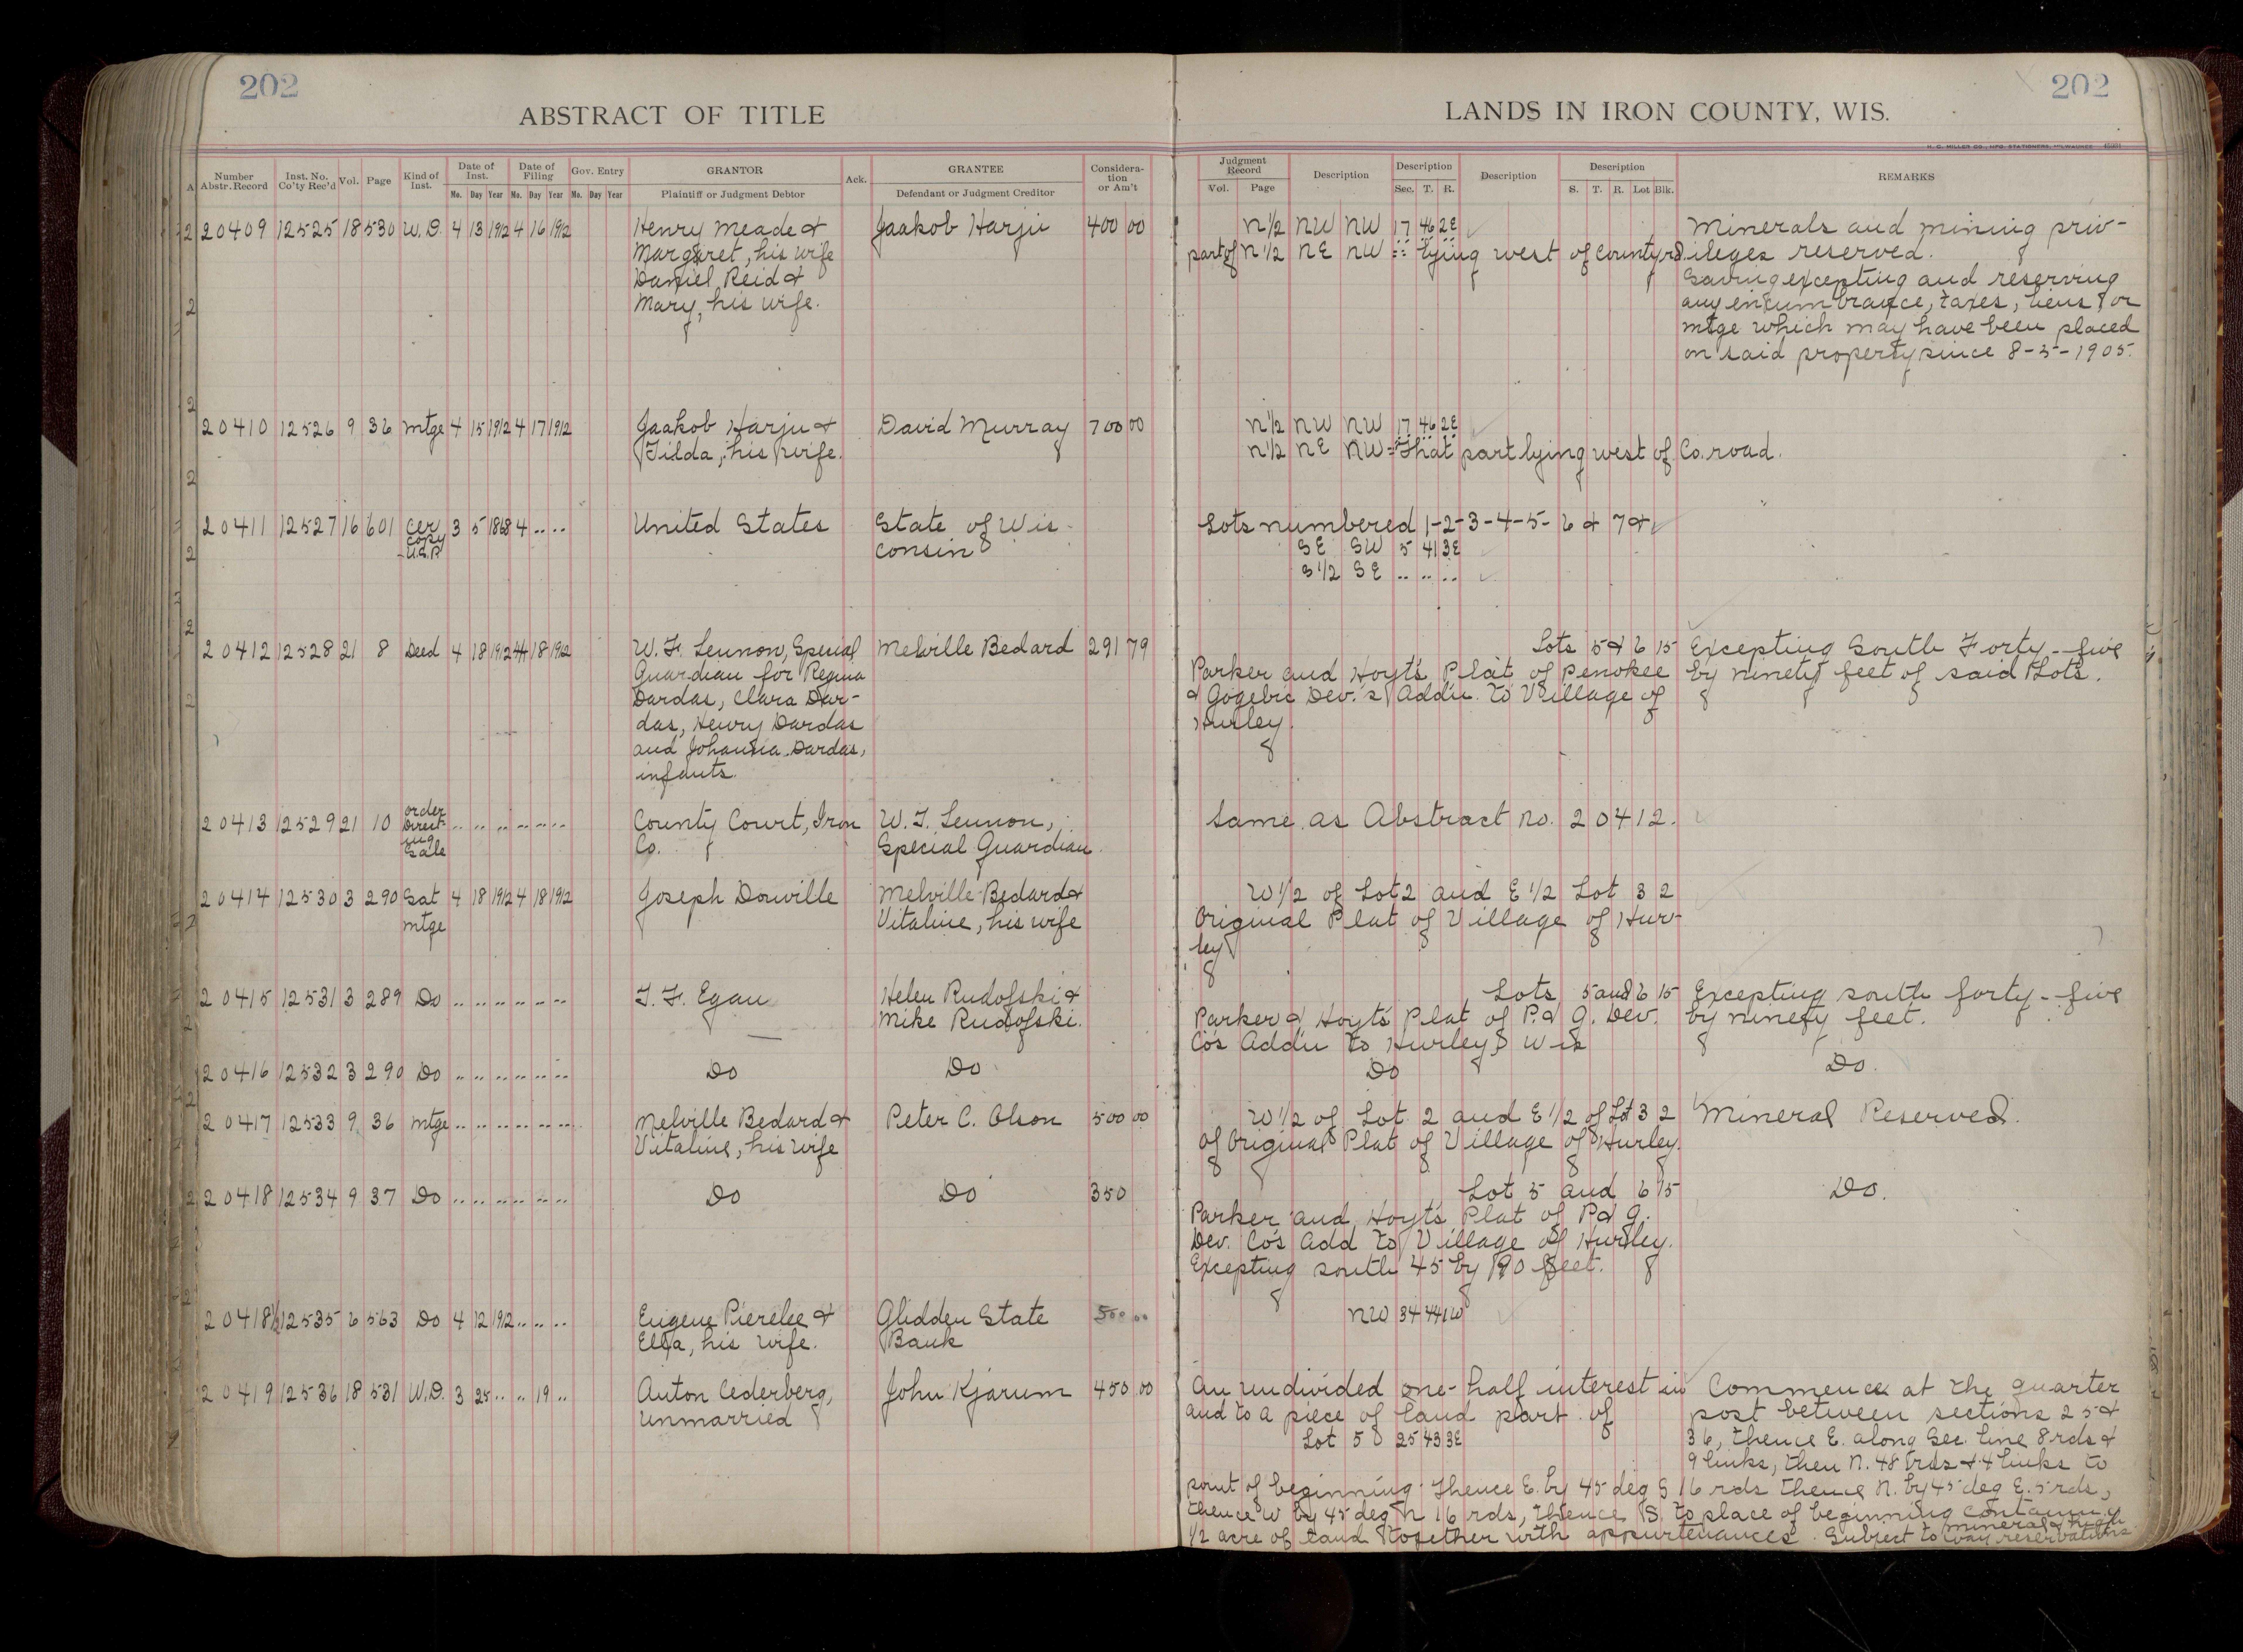 202
202
ABSTRACT OF TITLE
LANDS IN IRON COUNTY, WIS.
H. C. MILLER CO., MFG. STATIONERS, MILWAUKEE
Number Abstr. Record Inst. No. Co'ty Rec'd Vol. Page Kind of Inst. Date of Inst. Mo. Day Year Date of Filing Mo. Day Year Gov. Entry Mo. Day Year GRANTOR Plaintiff or Judgment Debtor Ack. GRANTEE Defendant or Judgment Creditor Considera-tion or Am't
Judgment Record Vol. Page Description Description Sec. T. R. Description Description S. T. R. Lot Blk. REMARKS
20409 12525 18 530 W.D. 4 13 1912 4 16 1912 Henry Meade & Jaakob Harju 400 00 N 1/2 NW NW 17 46 2E Minerals and mining priv-
Margaret, his wife part of N 1/2 NE NW " " lying west of County rd. ileges reserved.
Daniel Reid & Saving excepting and reserving
Mary, his wife. any encumbrance, taxes, liens, or
mtge which may have been placed
on said property since 8-5-1905.
20410 12526 9 36 Mtge 4 15 1912 4 17 1912 Jaakob Harju & David Murray 700 00 N 1/2 NW NW 17 46 2E
Tilda, his wife. N 1/2 NE NW = That part lying west of Co. road.
20411 12527 16 601 Cer 3 5 1868 4 .. .. United States State of Wis- Lots numbered 1-2-3-4-5-6 & 7 &
copy consin SE SW 5 41 3E
U.S.P. S 1/2 SE .. .. ..
20412 12528 21 8 Deed 4 18 1912 4 18 1912 W. F. Lennon, Special Melville Bedard 291 79 Lots 5 & 6 15 Excepting South Forty-five
Guardian for Regina Parker and Hoyt's Plat of Penokee by ninety feet of said Lots.
Dardas, Clara Dar- & Gogebic Dev.'s Addn. to Village of
das, Henry Dardas Hurley.
and Johanna Dardas,
infants.
20413 12529 21 10 Order .. .. .. .. .. .. County Court, Iron W. F. Lennon, Same as Abstract No. 20412.
Direct- Co. Special Guardian.
ing
Sale
20414 12530 3 290 Sat 4 18 1912 4 18 1912 Joseph Douville Melville Bedard & W 1/2 of Lot 2 and E 1/2 Lot 3 2
Mtge Vitaline, his wife Original Plat of Village of Hur-
ley
20415 12531 3 289 Do .. .. .. .. .. .. T. F. Egan Helen Rudofski & Lots 5 and 6 15 Excepting south forty-five
Mike Rudofski. Parker & Hoyt's Plat of P. & G. Dev. by ninety feet.
Co's Addn to Hurley, Wis
20416 12532 3 290 Do .. .. .. .. .. .. Do Do Do Do.
20417 12533 9 36 Mtge .. .. .. .. .. .. Melville Bedard & Peter C. Olson 500 00 W 1/2 of Lot 2 and E 1/2 of Lot 3 2 Mineral Reserved.
Vitaline, his wife of Original Plat of Village of Hurley.
20418 12534 9 37 Do .. .. .. .. .. .. Do Do 350 Lot 5 and 6 15 Do.
Parker and Hoyt's Plat of P & G.
Dev. Co's Add to Village of Hurley.
Excepting south 45 by 90 feet.
20418½ 12535 6 563 Do 4 12 1912 .. .. .. Eugene Pierelee & Glidden State 500 00 NW 34 44 1W
Ella, his wife. Bank
20419 12536 18 531 W.D. 3 25 .. .. 19 .. Anton Cederberg, John Kjarum 450 00 An undivided one-half interest in Commence at the quarter
Unmarried and to a piece of land part of post between sections 25 &
Lot 5 25 43 3E 36, thence E. along Sec. line 8 rds &
9 links, then N. 48 rds & 4 links to
point of beginning. Thence E. by 45 deg S 16 rds thence N. by 45 deg E. 5 rds,
thence W by 45 deg N 16 rds, thence S. to place of beginning containing
1/2 acre of land together with appurtenances. Subject to mineral & high
way reservations